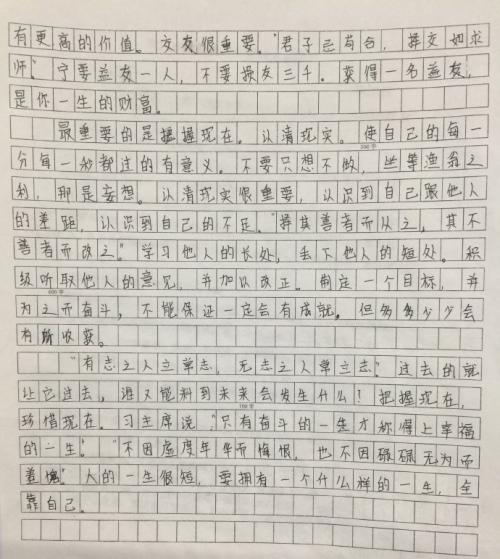 有更高的价值。交友很重要。“君子已苟合，择交如求
师。”宁要益友一人，不要损友三千。获得一名益友，
是你一生的财富。
最重要的是把握现在。认清现实。使自己的每一
分每一秒都过的有意义。不要只想不做，坐等渔翁之
利，那是妄想。认清现实很重要，认识到自己跟他人
的差距，认识到自己的不足。“择其善者而从之，其不
善者而改之。”学习他人的长处，丢下他人的短处。积
级听取他人的意见，并加以改正。制定一个目标，并
为之而奋斗，不能保证一定会有成就。但多多少少会
有所收获。
“有志之人立常志，无志之人常立志。”过去的就
让它过去，谁又能料到未来会发生什么！把握现在，
珍惜现在。习主席说，“只有奋斗的一生才称得上幸福
的一生。”“不因虚度年华而悔恨，也不因碌碌无为而
羞愧。”人的一生很短，要拥有一个什么样的一生，全
靠自己。